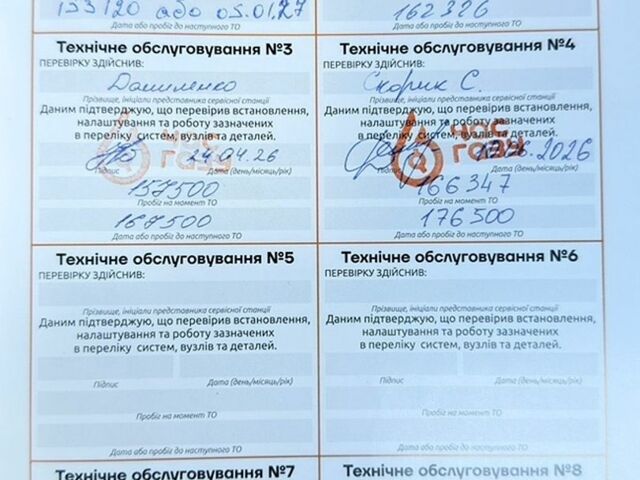 153120 або 05.01.27
Дата або пробіг до наступного ТО
162326
Дата або пробіг до наступного ТО
Технічне обслуговування №3
ПЕРЕВІРКУ ЗДІЙСНИВ:
Даниленко
Прізвище, ініціали представника сервісної станції
Даним підтверджую, що перевірив встановлення,
налаштування та роботу зазначених
в переліку систем, вузлів та деталей.
24.04.26
Підпис Дата (день/місяць/рік)
157500
Пробіг на момент ТО
167500
Дата або пробіг до наступного ТО
Технічне обслуговування №4
ПЕРЕВІРКУ ЗДІЙСНИВ:
Скорик С.
Прізвище, ініціали представника сервісної станції
Даним підтверджую, що перевірив встановлення,
налаштування та роботу зазначених
в переліку систем, вузлів та деталей.
ЧАС
ГАЗУ
2026
Підпис Дата (день/місяць/рік)
166347
Пробіг на момент ТО
176500
Дата або пробіг до наступного ТО
Технічне обслуговування №5
ПЕРЕВІРКУ ЗДІЙСНИВ:
Прізвище, ініціали представника сервісної станції
Даним підтверджую, що перевірив встановлення,
налаштування та роботу зазначених
в переліку систем, вузлів та деталей.
Підпис Дата (день/місяць/рік)
Пробіг на момент ТО
Дата або пробіг до наступного ТО
Технічне обслуговування №6
ПЕРЕВІРКУ ЗДІЙСНИВ:
Прізвище, ініціали представника сервісної станції
Даним підтверджую, що перевірив встановлення,
налаштування та роботу зазначених
в переліку систем, вузлів та деталей.
Підпис Дата (день/місяць/рік)
Пробіг на момент ТО
Дата або пробіг до наступного ТО
Технічне обслуговування №7
Технічне обслуговування №8